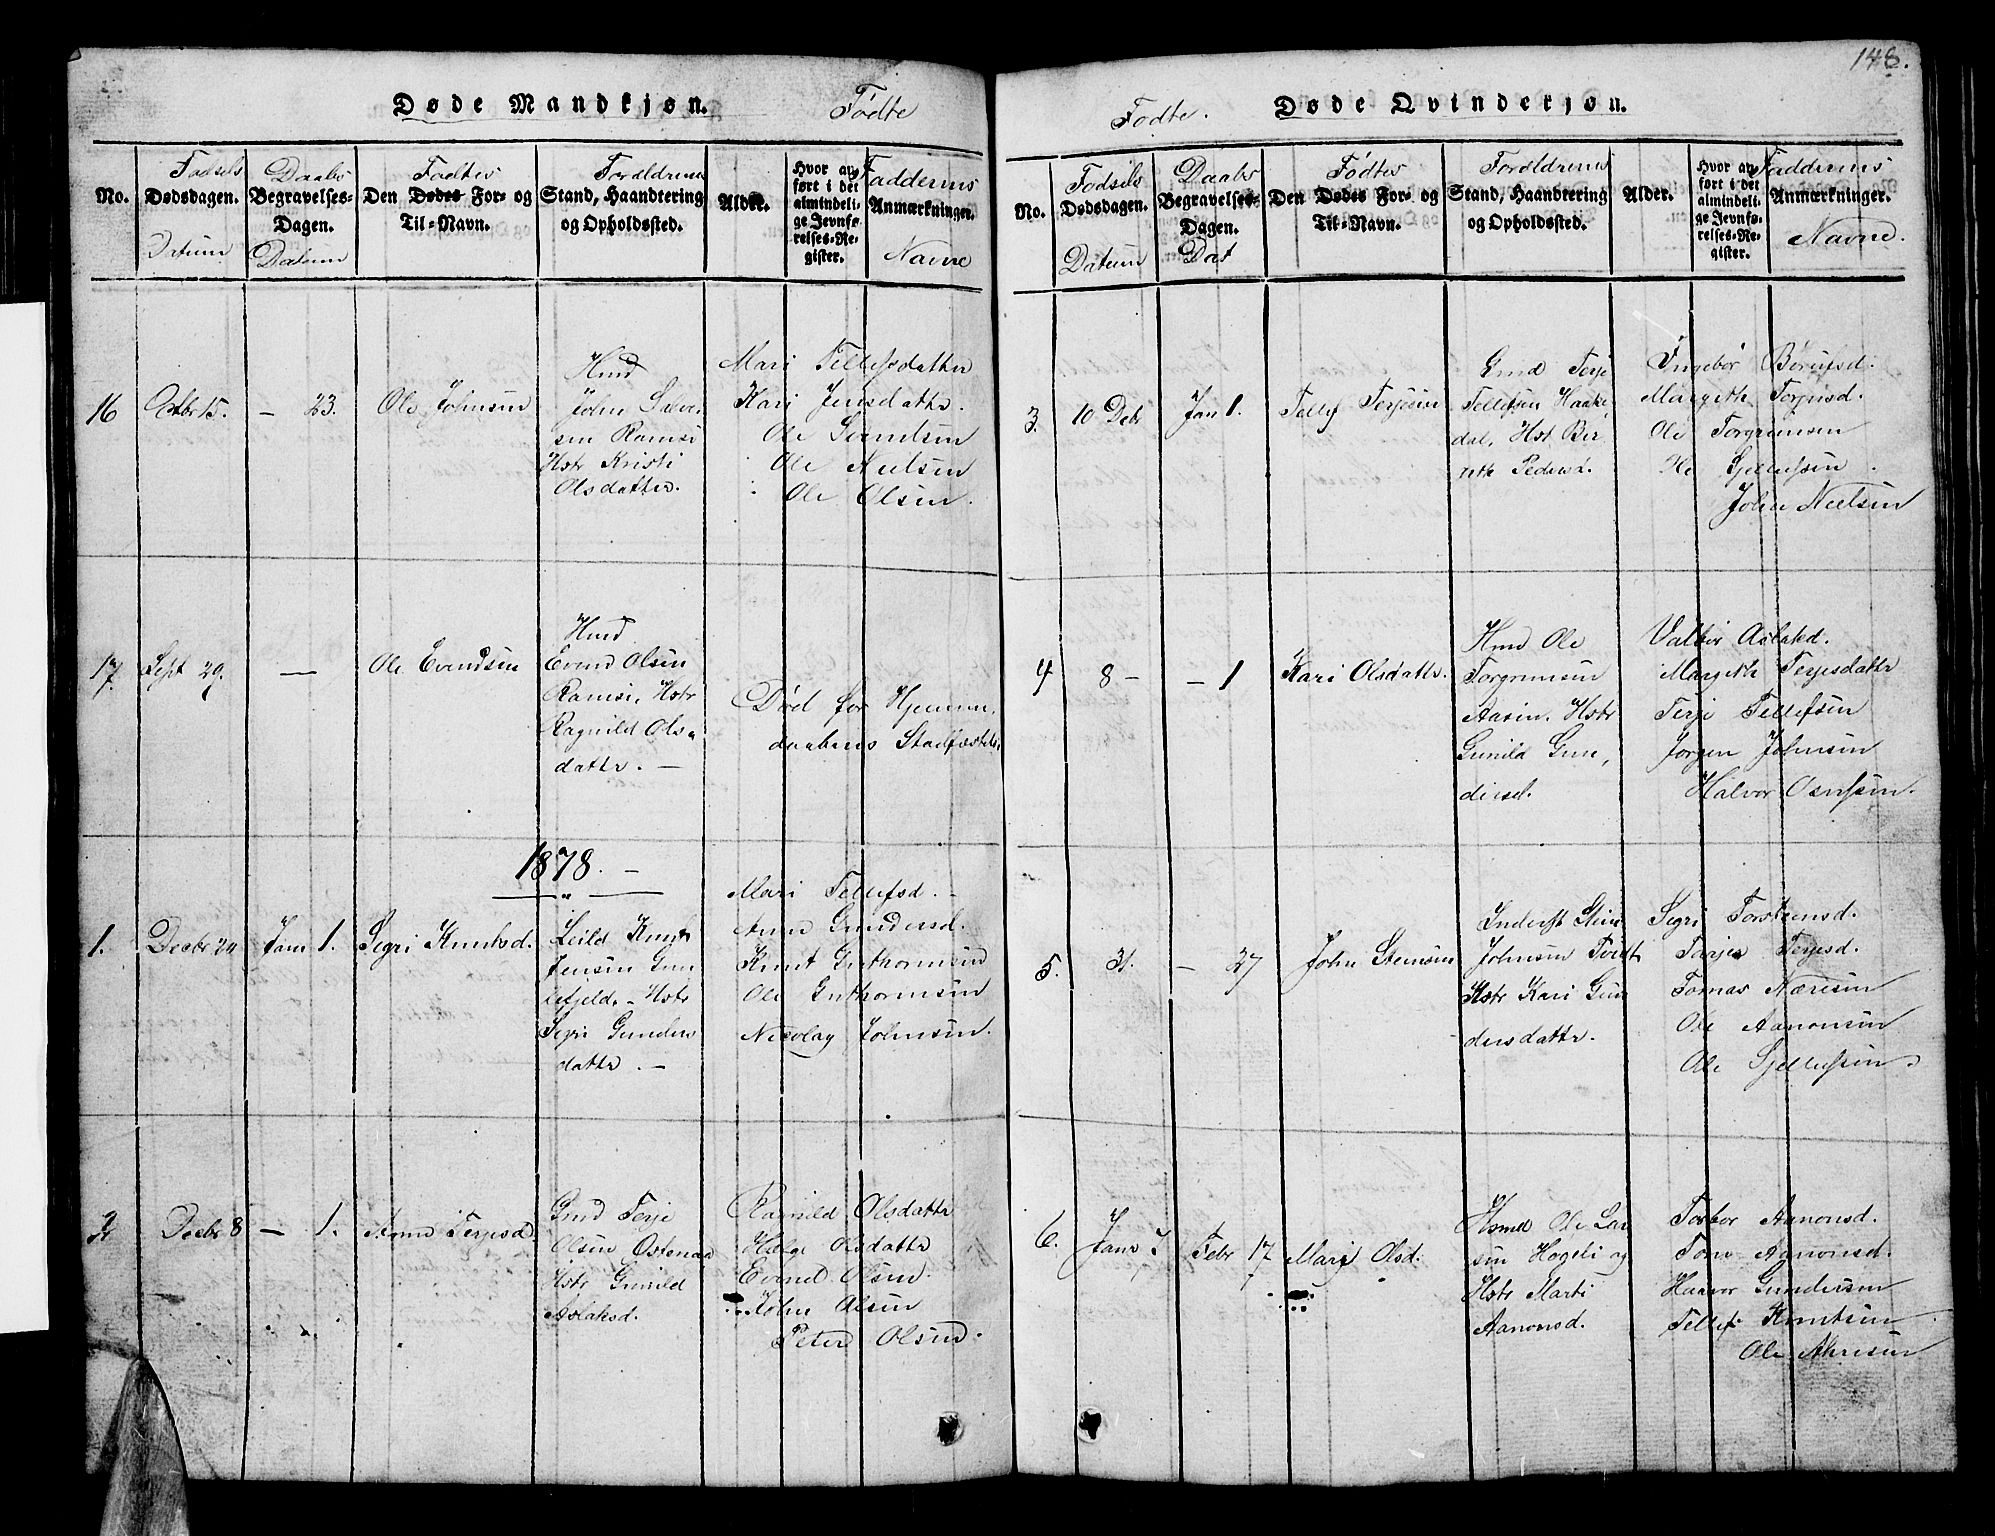 148.
Døde Mandkjøn.
Fødte
No.
Fødsels
Dødsdagen.
Datum
Daabs
Begravelses-
Dagen.
Datum
Fødtes
Den Dødes For- og
Til-Navn.
Forældrenes
Stand, Haandtering
og Opholdssted.
Alder.
Hvor an-
ført i det
almindeli-
ge Jevnfø-
relses-Re-
gister.
Faddernes
Anmærkninger.
Navne
16
Octbr 15.
— 23.
Ole Johnsen
Hmd
John Salve-
sen Ramse
Hstr Kristi
Olsdatter.
Mari Tellefsdatter
Kari Jensdattr.
Ole Evendsen
Ole Nielsen
Ole Olsen.
17.
Sept 29.
—
Ole Evendsen
Hmd
Evend Olsen
Ramse, Hstr
Ragnild Ols-
dattr. —
Død før Hjemme-
daabens Stadfæstelse
1878. —
1.
Decbr 24
Janr 1.
Segri Knutsd.
Leild Knut
Jensen Gun
lefjeld. - Hstr
Segri Gunders
dattr. —
Mari Tellefsd. —
Anne Gundersd.
Knut Guthormsen
Ole Guthormsen
Nicolay Johnsen.
2
Decbr 8
— 1.
Anne Terjesd
Gmd Terje
Olsen Ostenaa
Hstr Gunild
Aslaksd.
Ragnild Olsdattr
Hælge Olsdattr
Evend Olsen.
John Olsen
Peter Olsen.
Fødte.
Døde Qvindekjøn.
No.
Fødsels
Dødsdagen.
Datum
Daabs
Begravelses-
Dagen.
Dat
Fødtes
Den Dødes For- og
Til-Navn.
Forældrenes
Stand, Haandtering
og Opholdssted.
Alder.
Hvor an-
ført i det
almindeli-
ge Jevnfø-
relses-Re-
gister.
Faddernes
Anmærkninger.
Navne.
3.
10 Debr
Jan 1.
Tellef Terjesen
Gmd Terje
Tellefsen Haake-
dal, Hst Ber-
reth Pedersd.
Ingebor
Margith Torjusd.
Ole Torgrimsen
Ole Sjellufsen
John Nielsen
4
8 —
— 1
Kari Olsdattr.
Hmd Ole
Torgrimsen
Aasen. Hstr
Gunild Gun-
dersd.
Valbør Aslaksd.
Margith Terjesdattr
Terje Tellefsen
Jørgen Johnsen
Halvor
5.
31.
— 27
John Stensen
Inderst Sten
Johnsen Tvedt
Hstr Kari Gun
dersdattr.
Segri Torstensd.
Torjer Terjesd.
Tomas
Ole Aanonsen
Ole Sjellufsen
6.
Janr 7
Febr 17
Mari Olsd.
Hsmd Ole Lar
sen Hogeli og
Hstr Marti
Aanonsd.
Torbor Aanonsd.
Tone Aanonsd.
Haavor Gundersen
Tellef Knutsen
Ole